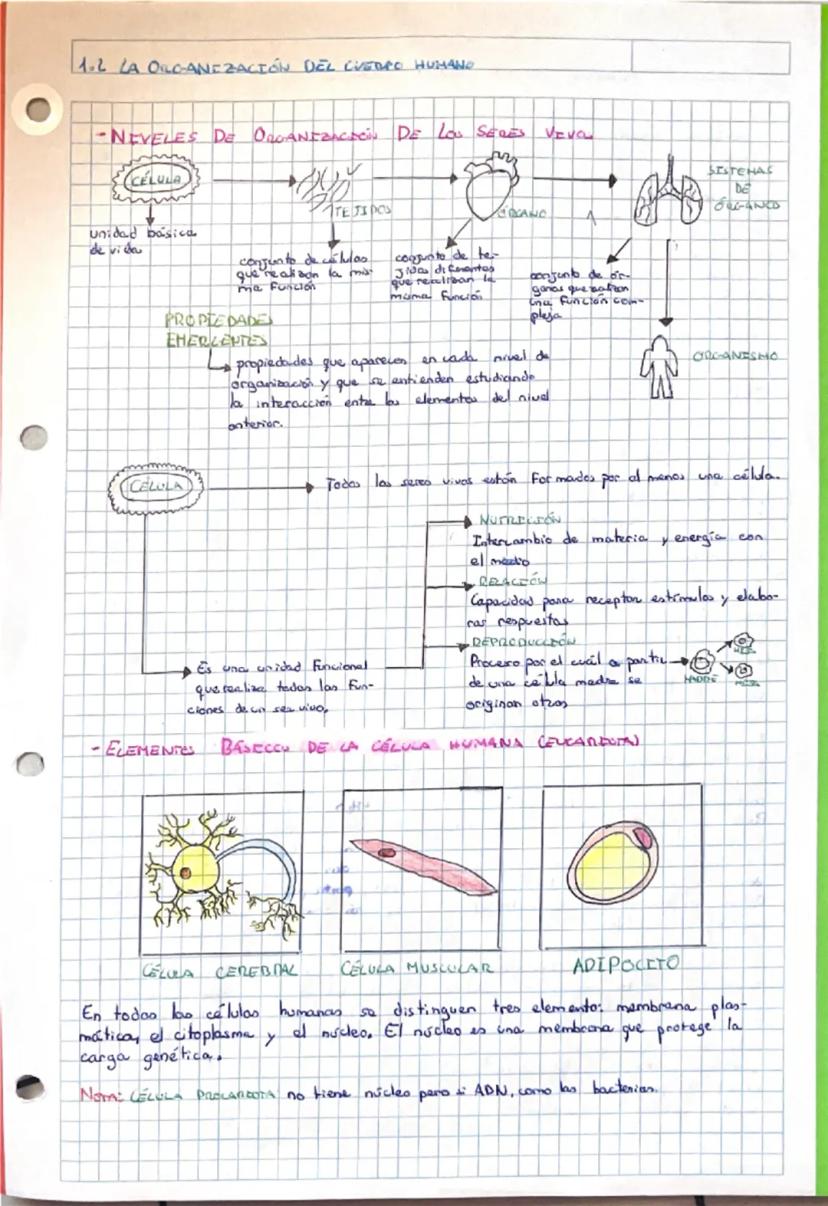 1.2 LA ORGANIZACIÓN DEL CUERPO HUMANO
- NIVELES DE ORGANIZACIÓN DE LOS SERES VIVOS
CÉLULA
unidad básica
de vida
TEJIDOS
conjunto de células
que realizan la mis-
ma función
ÓRGANO
conjunto de te-
jidos diferentes
que realizan la
misma función
SISTEMAS
DE
ÓRGANOS
conjunto de ór-
ganos que realizan
una función com-
pleja
ORGANISMO
PROPIEDADES
EMERGENTES
propiedades que aparecen en cada nivel de
organización y que se entienden estudiando
la interacción entre los elementos del nivel
anterior.
CÉLULA
Todos los seres vivos están formados por al menos una célula.
Es una unidad funcional
que realiza todas las fun-
ciones de un ser vivo,
NUTRICIÓN
Intercambio de materia y energía con
el medio
RELACIÓN
Capacidad para receptar estímulos y elabo-
rar respuestas
REPRODUCCIÓN
Proceso por el cuál a partir
de una célula madre se
originan otras
MADRE
HIJA
HIJA
- ELEMENTOS BÁSICOS DE LA CÉLULA HUMANA (EUCARIOTA)
CÉLULA CEREBRAL
CÉLULA MUSCULAR
ADIPOCITO
En todas las células humanas se distinguen tres elemento: membrana plas-
mática, el citoplasma y el núcleo. El núcleo es una membrana que protege la
carga genética.
Nota: CÉLULA PROCARIOTA no tiene núcleo pero si ADN, como las bacterias.